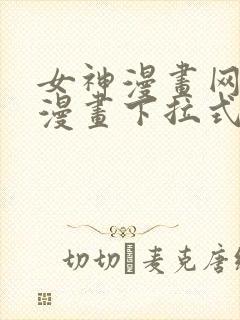 女神漫畫网
漫畫下拉式
切切 麦克唐纳